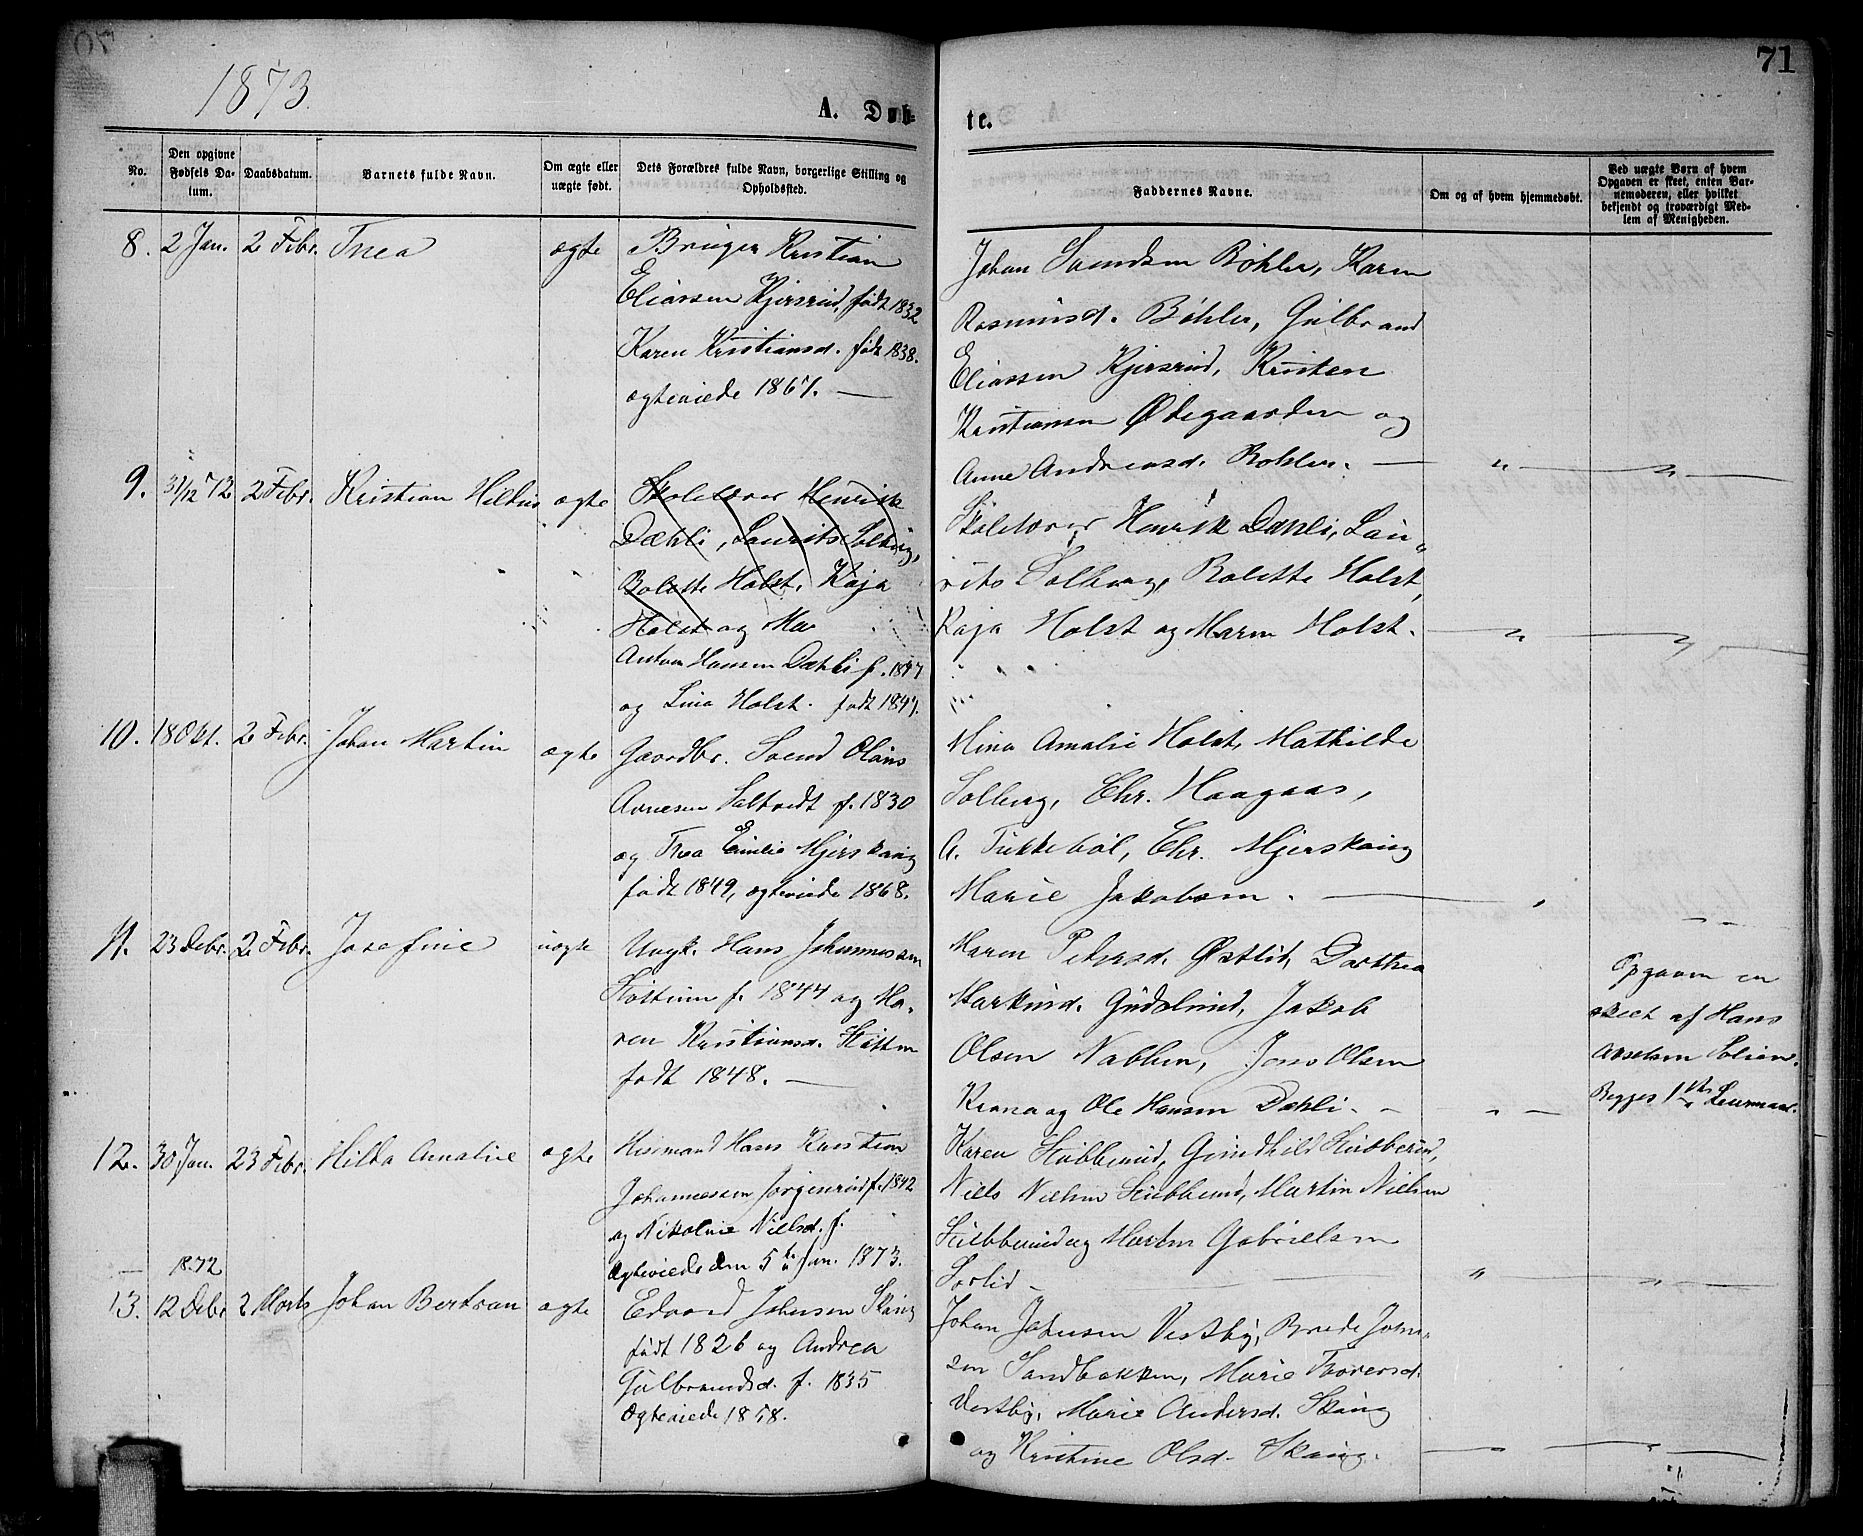 1873.
71
A. Døb-
te.
No.
Den opgivne Fødsels Da-tum.
Daabsdatum.
Barnets fulde Navn.
Om ægte eller uægte født.
Dets Forældres fulde Navn, borgerlige Stilling og Opholdssted.
Faddernes Navne.
Om og af hvem hjemmedøbt.
Ved uægte Børn af hvem Opgaven er skeet, enten Bar-nemoderen, eller hvilket bekjendt og troværdigt Med-lem af Menigheden.
8. 2 Jan. 2 Febr. Thea ægte Bruger Kristian
Eliassen Kjersrud, født 1832
Karen Kristiansd. født 1838.
ægteviede 1867.
Johan Svendsen Bøhler, Karen
Rasmusd. Bøhler, Gulbrand
Eliassen Kjersrud, Kristen
Kristiansen Ødegaarden og
Anne Andreasd. Bøhler.
9. 31/12 72 2 Febr. Kristian Hilbus ægte Skolelærer Henrik
Dæhli, Laurits Solberg,
Bolette Holst, Kaja
Holst og Ma
Anton Hansen Dæhli f. 1847
og Lina Holst. født 1847.
Skolelærer Henrik Dæhli, Lau-
rits Solberg, Bolette Holst,
Kaja Holst og Maren Holst.
10. 18 Okt. 2 Febr. Johan Martin ægte Gaardbr. Svend Olaus
Arnesen Saltvedt f. 1830
og Thea Emilie Hjerskaug
født 1849, ægteviede 1868.
Mina Amalie Holst, Mathilde
Solberg, Chr. Haagaas,
A. Tukkebøl, Chr. Hjerskaug
Marie Jakobsen.
11. 23 Debr. 2 Febr. Josefine uægte Ungk. Hans Johannessen
f. 1844 og Ma-
ren Kristiansd.
født 1848.
Maren Petersd. Østlid, Dorthea
Markusd. Gudslund, Jakob
Olsen Nablum, Jens Olsen
og Ole Hansen Dæhli.
Opgaven er
skeet af Hans
Axelsen Solien.
Begges 1ste Leiermaal.
12. 30 Jan. 23 Febr. Hilda Amalie ægte Husmand Hans Kristian
Johannessen Jørgenrud f. 1842
og Nikoline Nielsd. f.
Ægteviede den 5te Jan. 1873.
Karen Stubberud, Gundhild Stubberud,
Niels Nielsen Stubberud, Martin Nielsen
Stubberud og Martin Gabrielsen
Sørlid
1872
13. 12 Debr. 2 Marts Johan Bertran ægte Edvard Johnsen Skaug
født 1826 og Andrea
Gulbrandsd. f. 1835
Ægteviede 1858.
Johan Johnsen Vestby, Brede John-
sen Sandbakken, Marie Thoresd.
Vestby, Marie Andersd. Skaug
og Kristine Olsd. Skaug.